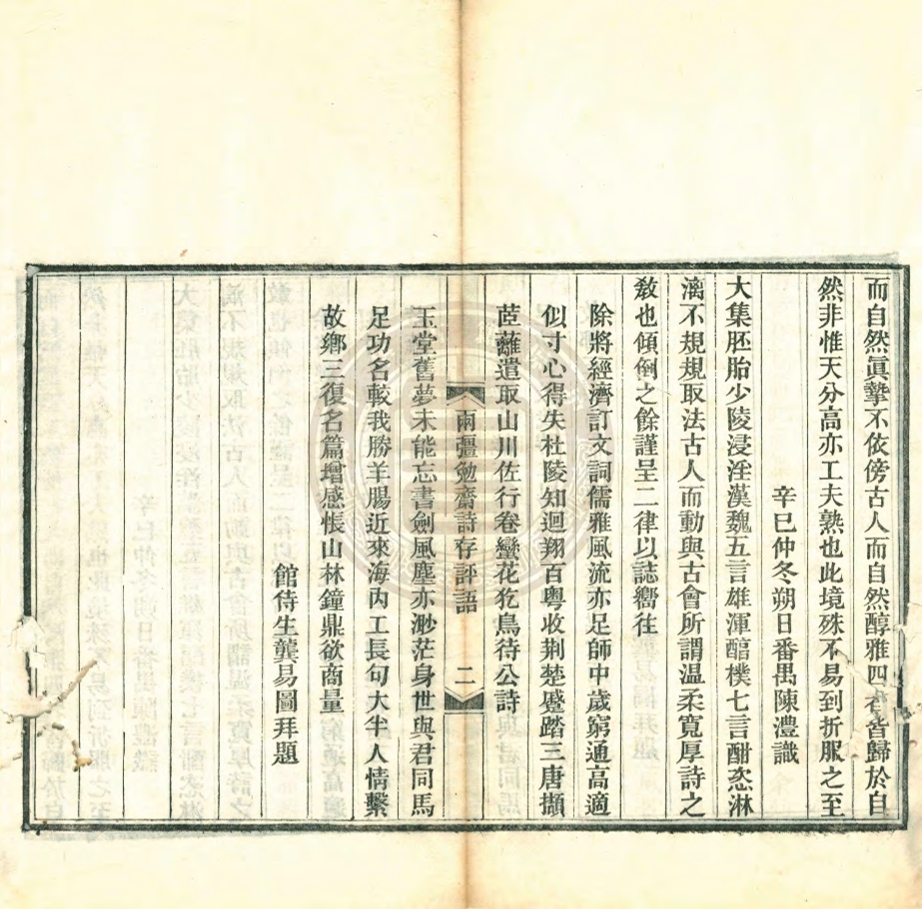 而自然眞摯不依傍古人而自然醇雅四者皆歸於自
然非惟天分高亦工夫熟也此境殊不易到折服之至
辛巳仲冬朔日番禺陳澧識
大集胚胎少陵浸淫漢魏五言雄渾醕樸七言酣恣淋
漓不規規取法古人而動與古會所謂温柔寬厚詩之
敎也傾倒之餘謹呈二律以誌嚮往
除將經濟訂文詞儒雅風流亦足師中歲窮通高適
似寸心得失杜陵知迴翔百粤收荆楚蹙踏三唐擷
茝蘺遣取山川佐行卷蠻花犵鳥待公詩
兩彊勉齋詩存評語
二
玉堂舊夢未能忘書劍風塵亦渺茫身世與君同馬
足功名較我勝羊腸近來海內工長句大半人情繫
故鄉三復名篇增感悵山林鐘鼎欲商量
館侍生龔易圖拜題